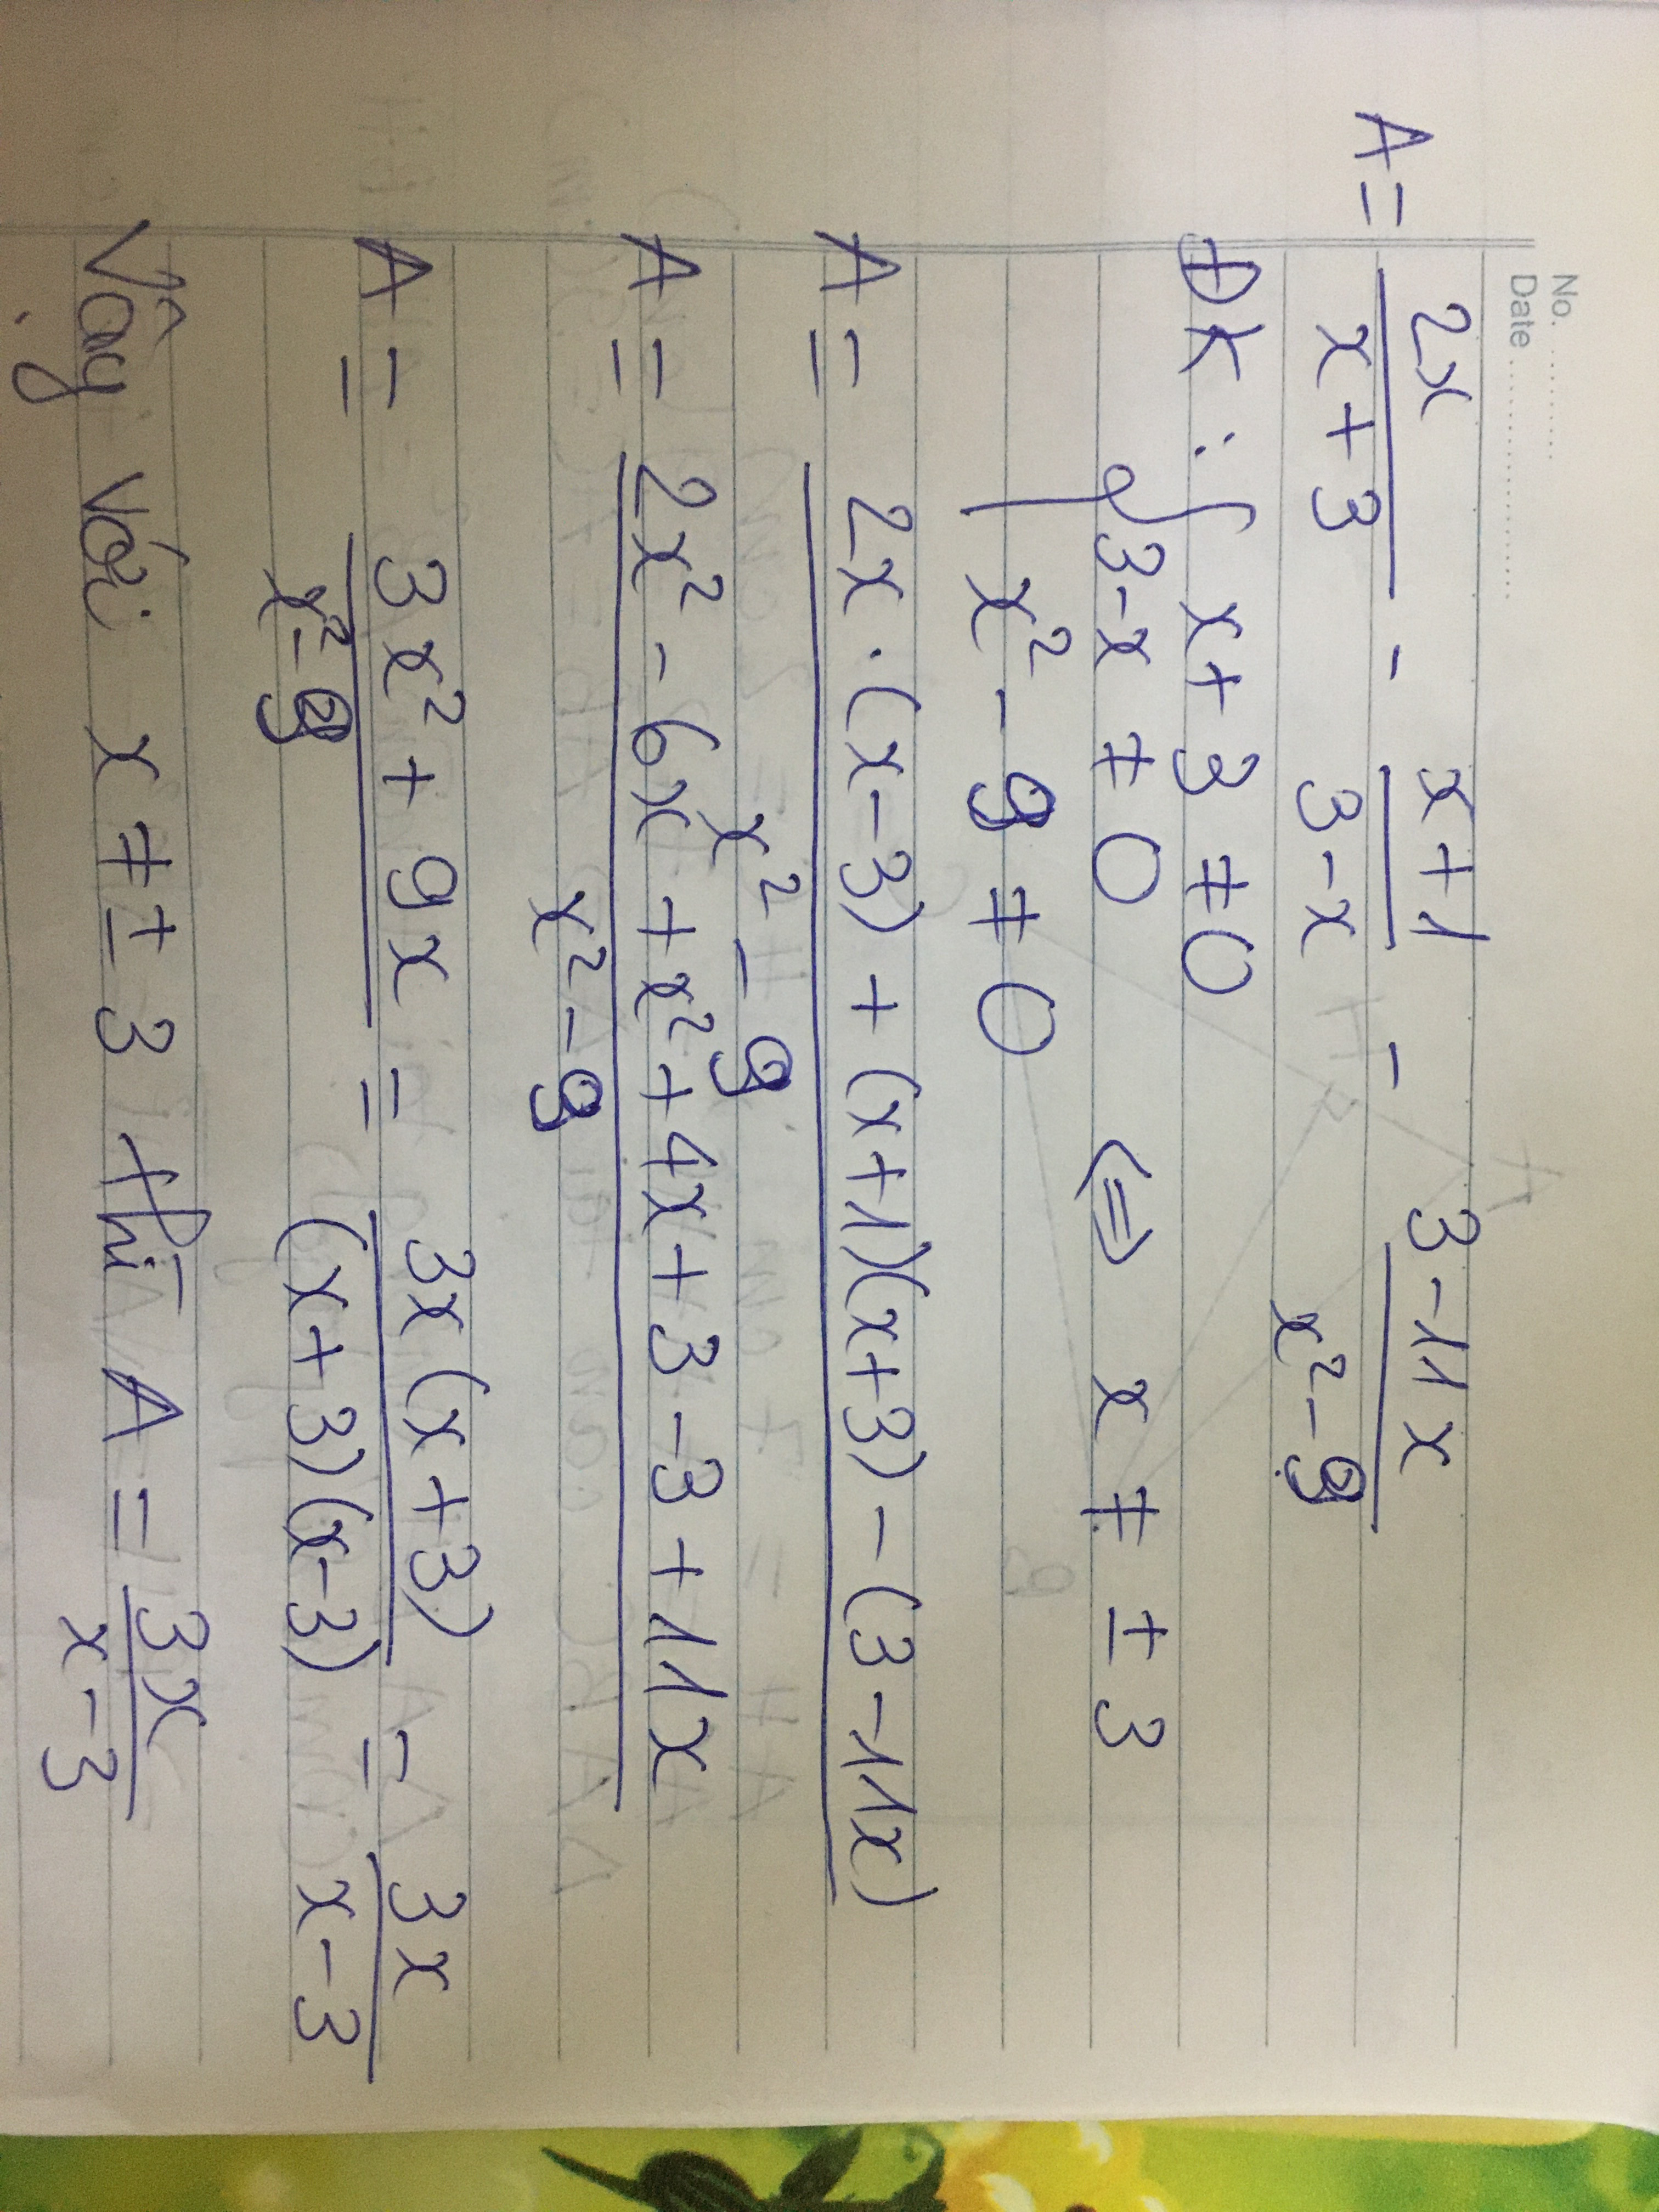 No. ............
Date ........................
A = 2x/(x+3) - (x+1)/(3-x) - (3-11x)/(x²-9)
ĐK : { x+3 ≠ 0
3-x ≠ 0 <=> x ≠ ±3
x² - 9 ≠ 0
A = (2x·(x-3) + (x+1)(x+3) - (3-11x))/(x²-9)
A = (2x² - 6x + x² + 4x + 3 - 3 + 11x)/(x²-9)
A = (3x² + 9x)/(x²-9) = 3x(x+3)/((x+3)(x-3)) = 3x/(x-3)
Vậy với x ≠ ±3 thì A = 3x/(x-3)